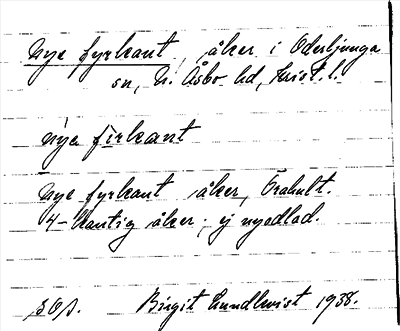 Nye fyrkant, åker i Oderljunga
sn, N. Åsbo hd, Krist. l.
nya firkant
Nye fyrkant åker, Örahult.
4-kantig åker; ej nyodlad.
s. O. s. Birgit Lundkvist 1938.